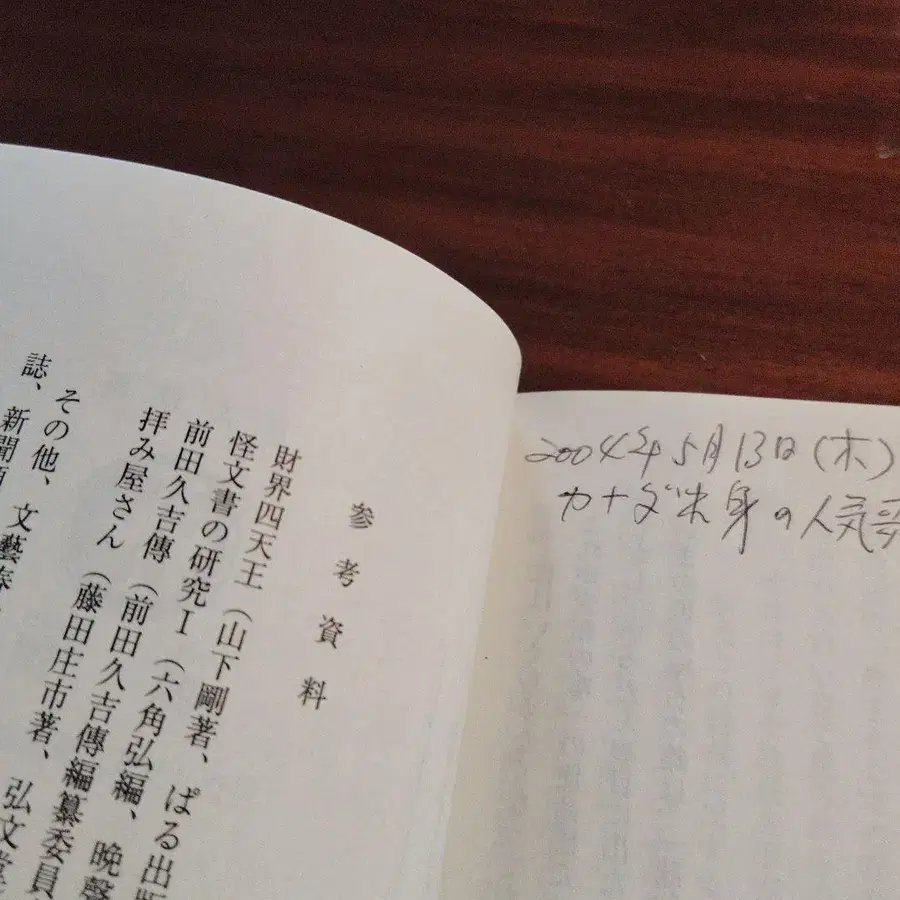 参考資料
財界四天王（山下剛著、ぱる出版
怪文書の研究Ⅰ（六角弘編、晩聲
前田久吉傳（前田久吉傳編纂委員
拝み屋さん（藤田庄市著、弘文堂
その他、文藝春
誌、新聞
2004年5月13日(木)
カナダ出身の人気